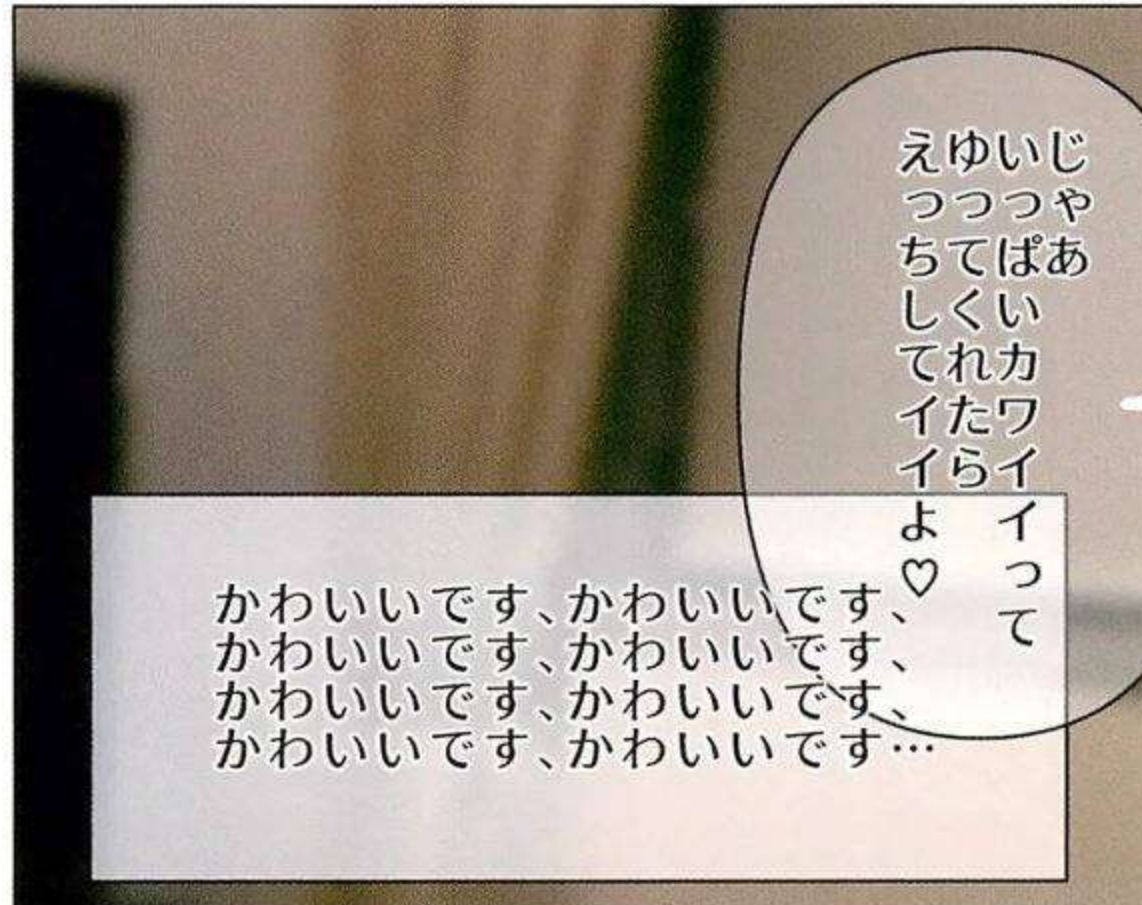 じゃあ
いっぱいカワイイって
ゆってくれたら
えっちしてイイよ♡
かわいいです、かわいいです、
かわいいです、かわいいです、
かわいいです、かわいいです、
かわいいです、かわいいです…